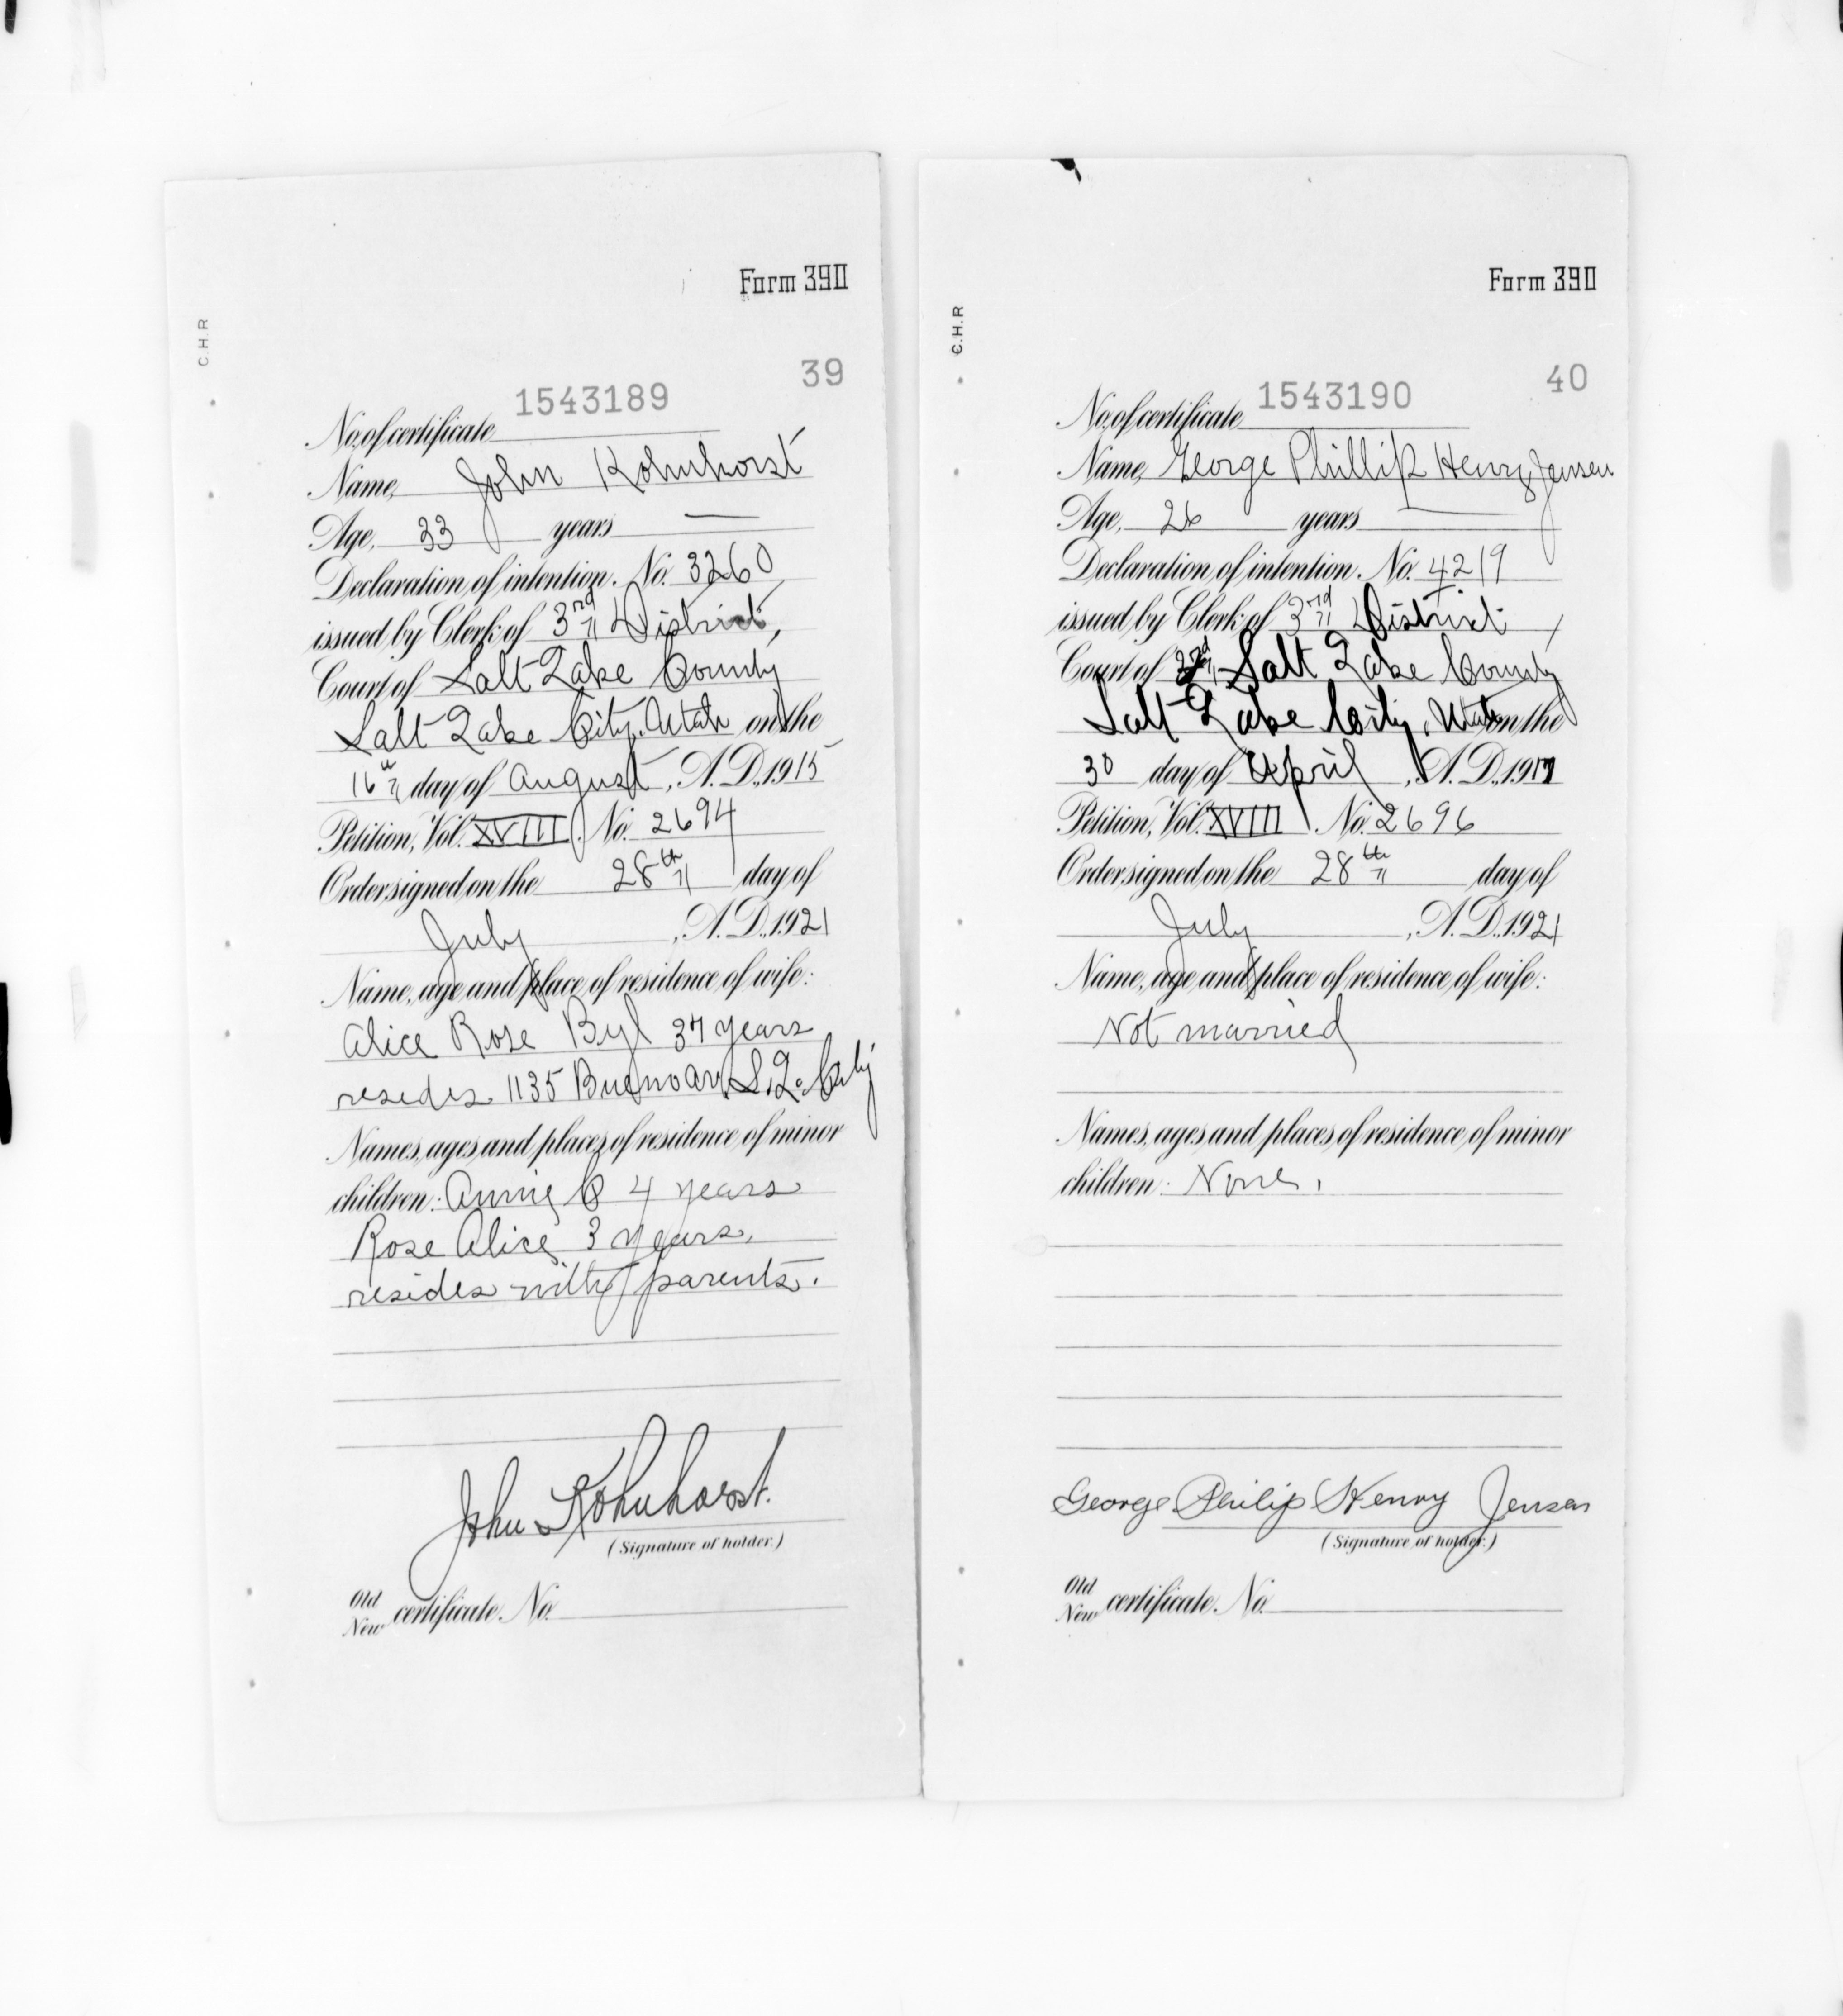 Form 390
C.H.R
39
1543189
No. of certificate
Name, John Kohnhorst
Age, 33 years —
Declaration of intention. No. 3260
issued by Clerk of 3rd District,
Court of Salt Lake County
Salt Lake City, Utah on the
16th day of August, A.D., 1915
Petition, Vol. XVIII. No. 2694
Order signed on the 28th day of
July, A.D., 1921
Name, age and place of residence of wife:
Alice Rose Byl 37 years
resides 1135 Bueno Av. S. L. City
Names, ages and places of residence of minor
children: Annie 4 years
Rose Alice 3 years,
resides with parents.
John Kohnhorst.
(Signature of holder.)
Old
New certificate. No.
Form 390
C.H.R
40
1543190
No. of certificate
Name, George Phillip Henry Jensen
Age, 26 years —
Declaration of intention. No. 4219
issued by Clerk of 3rd District,
Court of Salt Lake County
Salt Lake City, Utah on the
30 day of April, A.D., 1917
Petition, Vol. XVIII. No. 2696
Order signed on the 28th day of
July, A.D., 1921
Name, age and place of residence of wife:
Not married
Names, ages and places of residence of minor
children: None.
George Philip Henry Jensen
(Signature of holder.)
Old
New certificate. No.